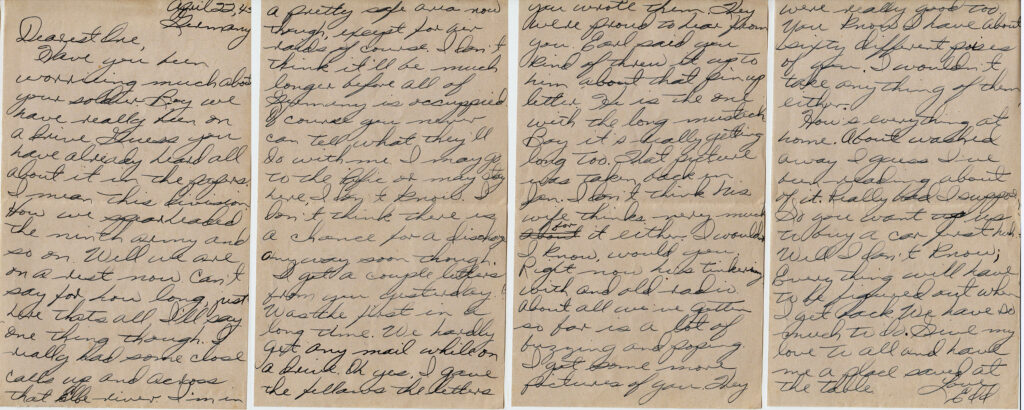 April 22, 45
Germany
Dearest One,
Have you been
worrying much about
your soldier Boy we
have really been on
a Drive Guess you
have already heard all
about it in the papers.
I mean this division
How we spearheaded
the ninth army and
so on. Well we are
on a rest now can't
say for how long, just
here thats all I'll say
one thing though. I
really had some close
calls up and across
that Elbe river. I'm in
a pretty safe area now
though, except for air
raids of course. I don't
think it'll be much
longer before all of
Germany is occuppied
Of course you never
can tell what they'll
do with me. I may go
to the Pacific or may stay
here I don't know. I
don't think there is
a chance for a discharge
anyway soon though.
I got a couple letters
from you yesterday
Was the first in a
long time. We hardly
get any mail while on
a drive. Oh yes, I gave
the fellows the letters
you wrote them. They
were proud to hear from
you. Earl said you
kind of threw it up to
him about that pin up
letter. He is the one
with the long mustach
Boy it's really getting
long too. That picture
was taken back in
Jan. I don't think his
wife thinks very much
for
about it either. I wouldn't
I know, would you.
Right now he's tinkering
with and old radio.
About all we've gotten
so far is a lot of
buzzing and poping.
I got some more
pictures of you. They
were really good too.
You know I have about
sixty different poses
of you. I wouldn't
take anything of them
either.
How's everything at
home. About washed
away I guess I've
been reading about
of it. Really bad I suppose
Do you want us
to buy a car first huh.
Well I don't know;
Everything will have
to be figured out when
I get back. We have so
much to do. Give my
love to all and have
me a place saved at
the table
Love
Edd